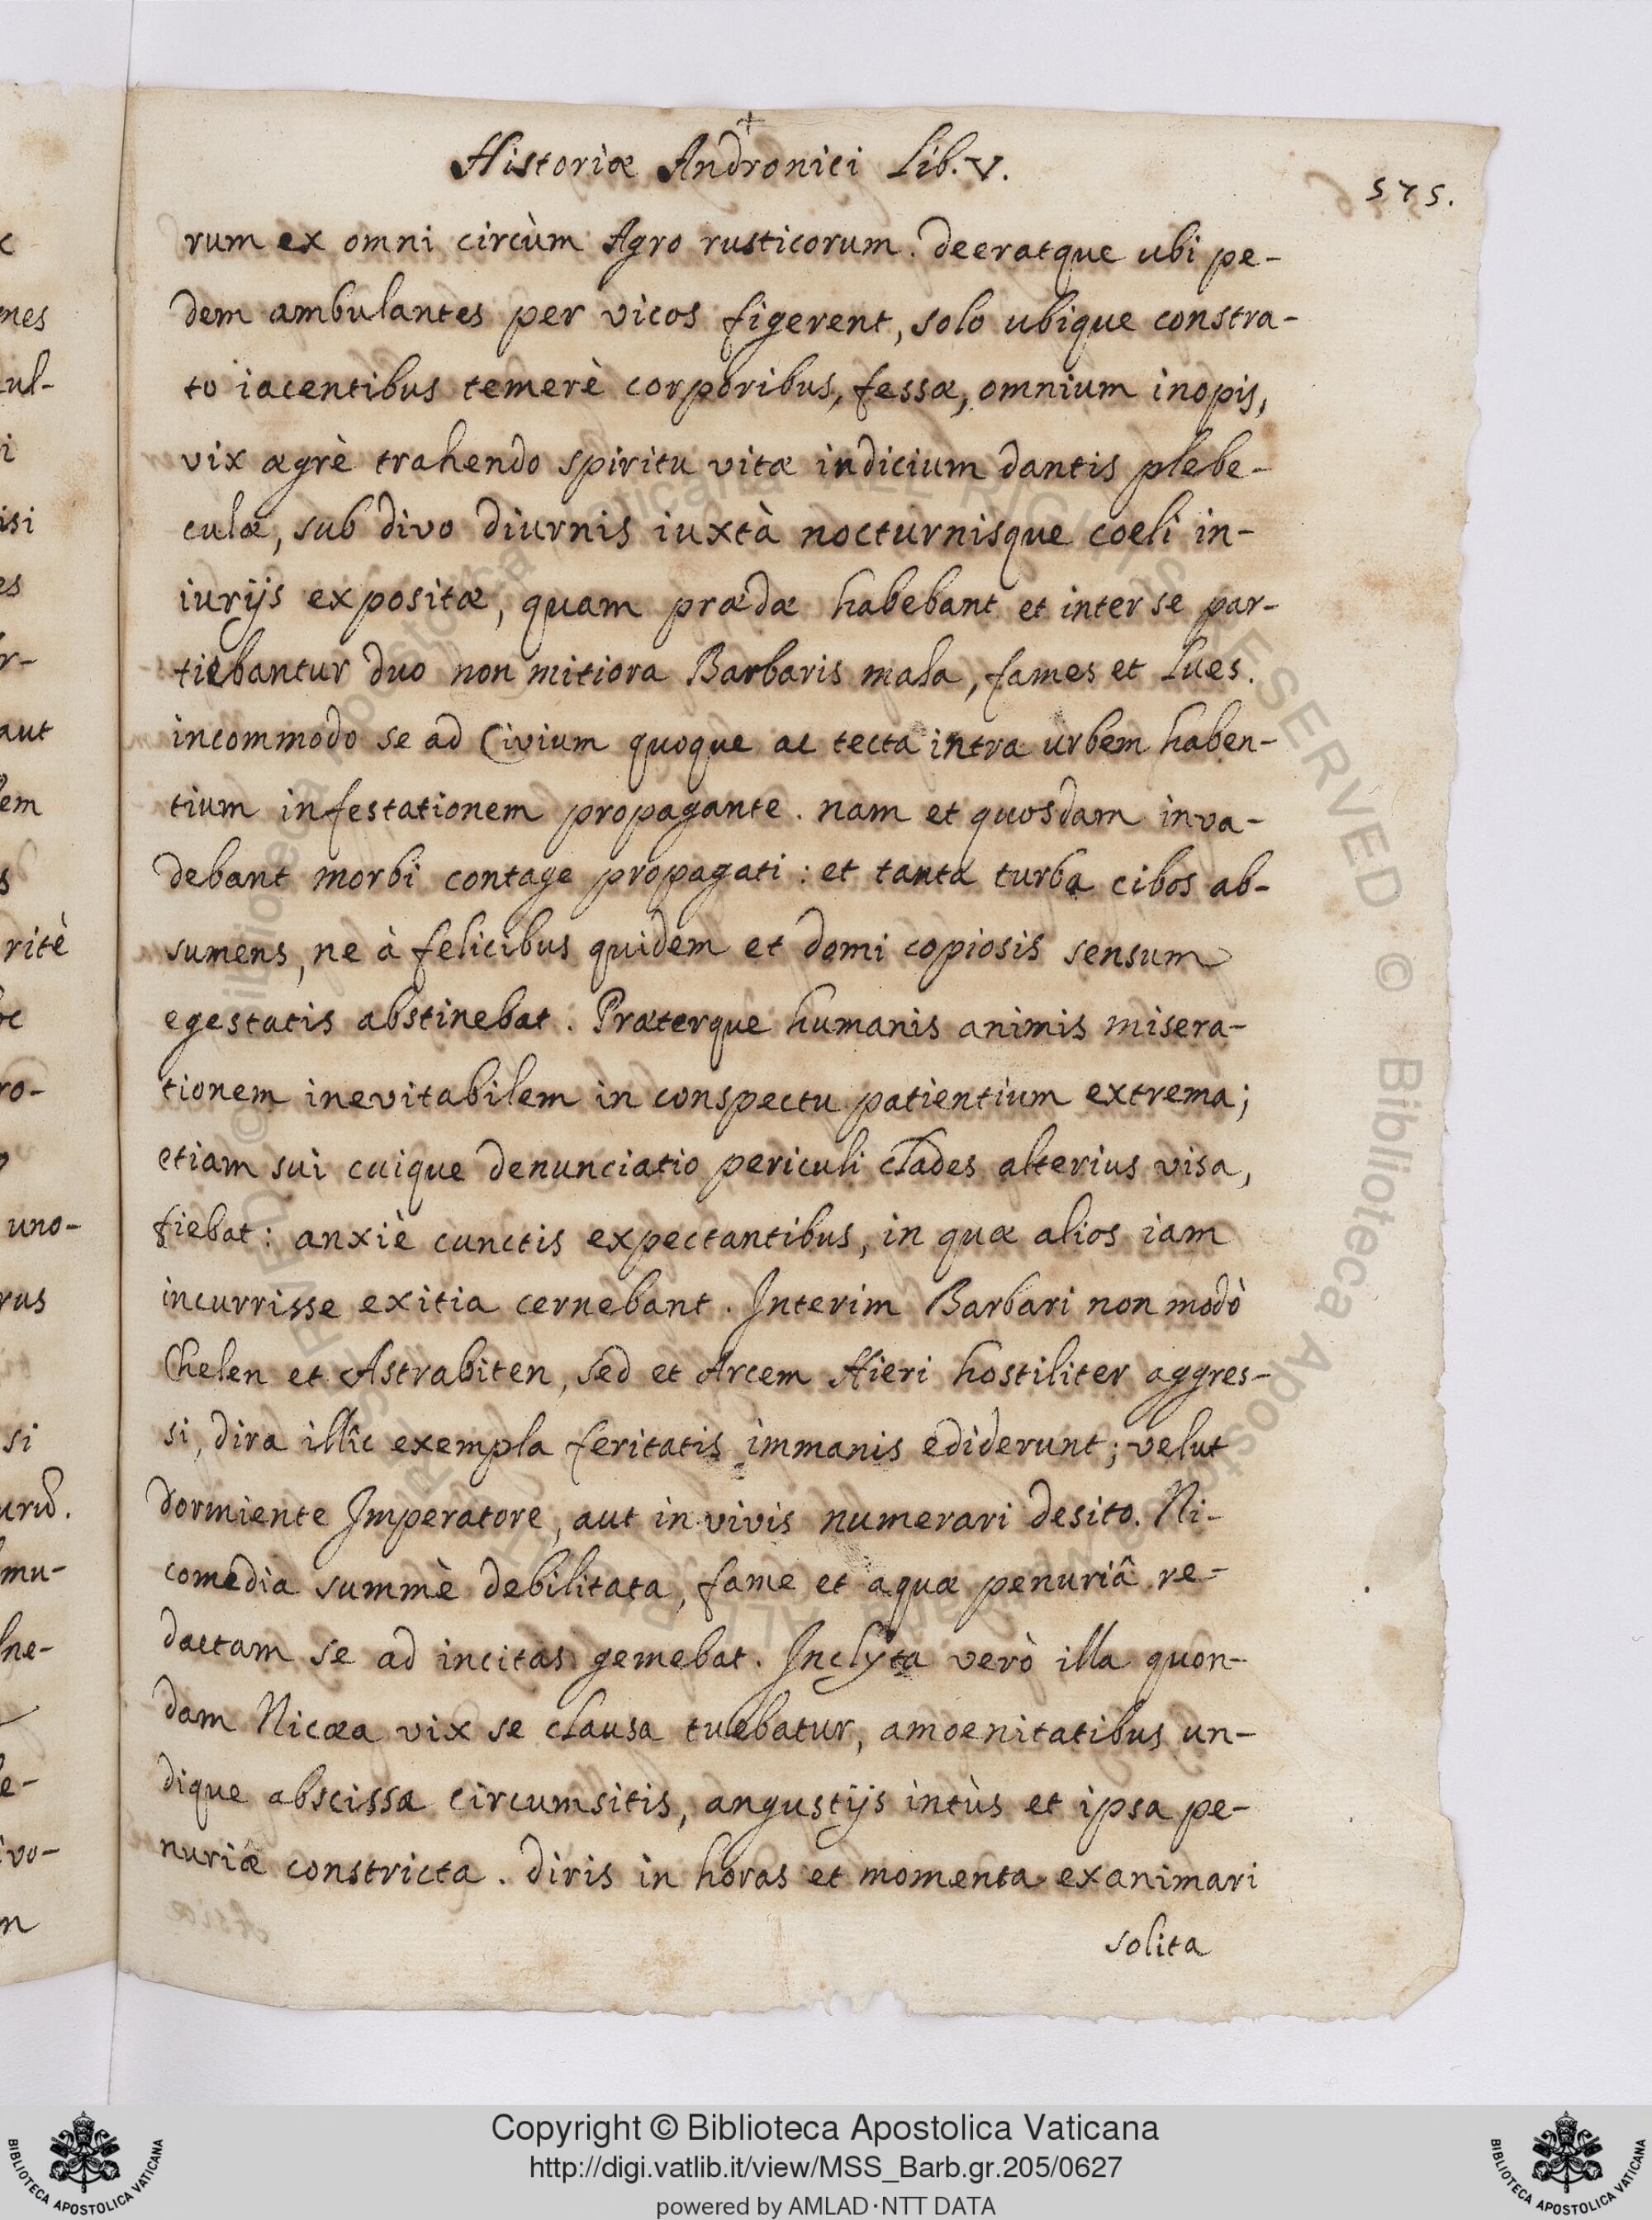 Historiæ Andronici Lib. V.
575.
rum ex omni circùm Agro rusticorum. deeratque ubi pe-
dem ambulantes per vicos figerent, solo ubique constra-
to iacentibus temerè corporibus, fessæ, omnium inopis,
vix ægrè trahendo spiritu vitæ indicium dantis plebe-
culæ, sub divo diurnis iuxtà nocturnisque coeli in-
iurijs expositæ, quam prædæ habebant et inter se par-
tiebantur duo non mitiora Barbaris mala, fames et Lues.
incommodo se ad Civium quoque ac tecta intra urbem haben-
tium infestationem propagante. nam et quosdam inva-
debant morbi contage propagati: et tanta turba cibos ab-
sumens, ne à felicibus quidem et domi copiosis sensum
egestatis abstinebat. Præterque humanis animis misera-
tionem inevitabilem in conspectu patientium extrema;
etiam sui cuique denunciatio periculi clades alterius visa,
fiebat: anxiè cunctis expectantibus, in quæ alios iam
incurrisse exitia cernebant. Interim Barbari non modò
Chelen et Astrabiten, sed et Arcem Hieri hostiliter aggres-
si, dira illîc exempla feritatis immanis ediderunt; velut
dormiente Imperatore, aut in vivis numerari desito. Ni-
comedia summè debilitata, fame et aquæ penuriâ re-
dactam se ad incitas gemebat. Inclyta verò illa quon-
dam Nicæa vix se clausa tuebatur, amoenitatibus un-
dique abscissa circumsitis, angustijs intùs et ipsa pe-
nuriæ constricta. diris in horas et momenta exanimari
solita
mes
ul-
isi
aut
ritè
uno-
rus
si
mu-
Copyright © Biblioteca Apostolica Vaticana
http://digi.vatlib.it/view/MSS_Barb.gr.205/0627
powered by AMLAD·NTT DATA
BIBLIOTECA APOSTOLICA VATICANA
BIBLIOTECA APOSTOLICA VATICANA